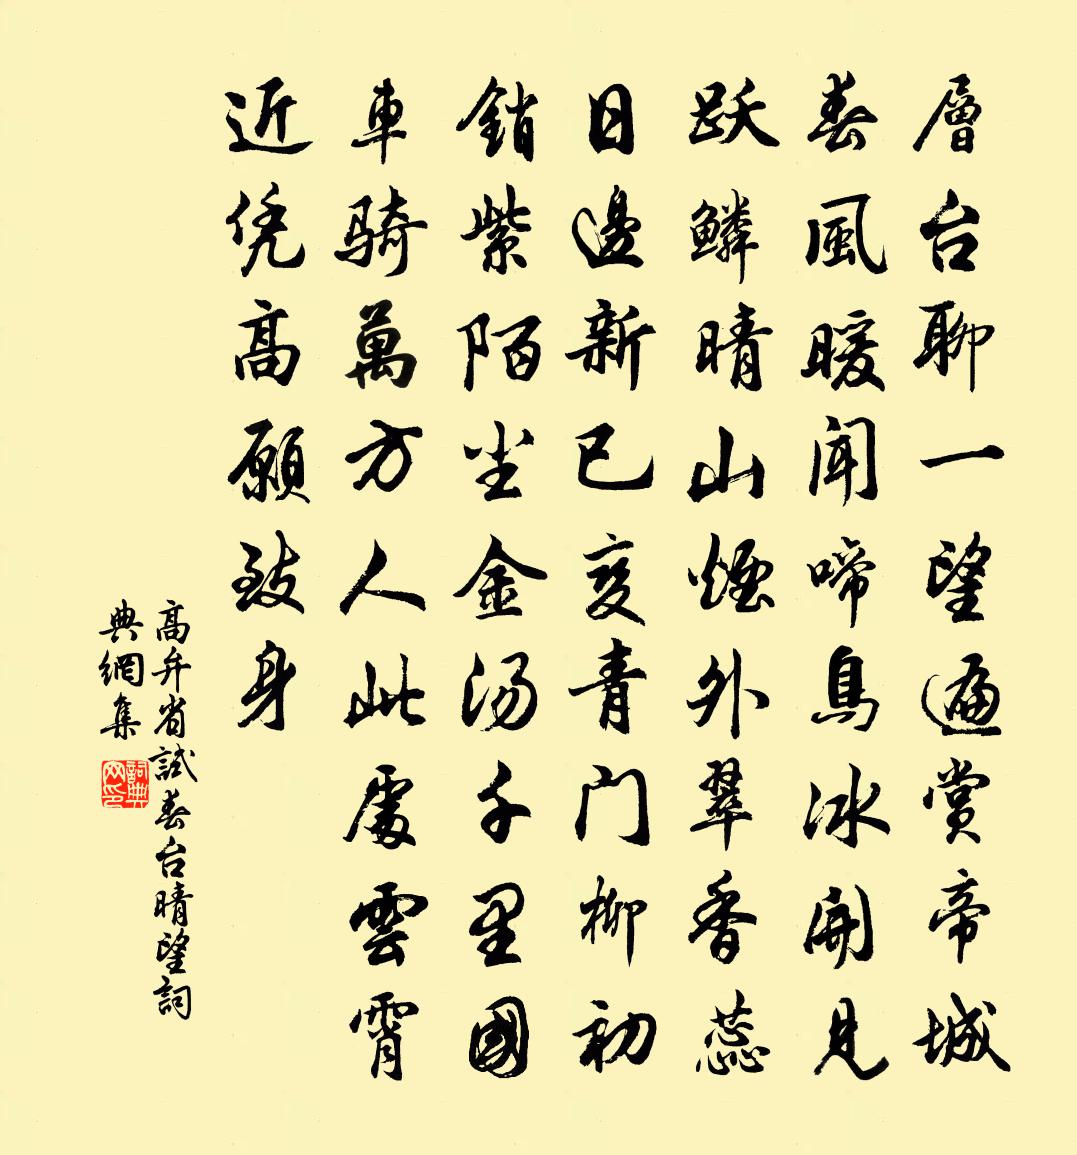 層台聊一望遍賞帝城
春風暖聞啼鳥冰開見
跃鱗晴山煙外翠香蕊
日邊新已变青門柳初
銷紫陌尘金湯千里國
車騎萬方人此處雲霄
近凭高願致身
高弁省試春台晴望詞
典網集
詞典网印